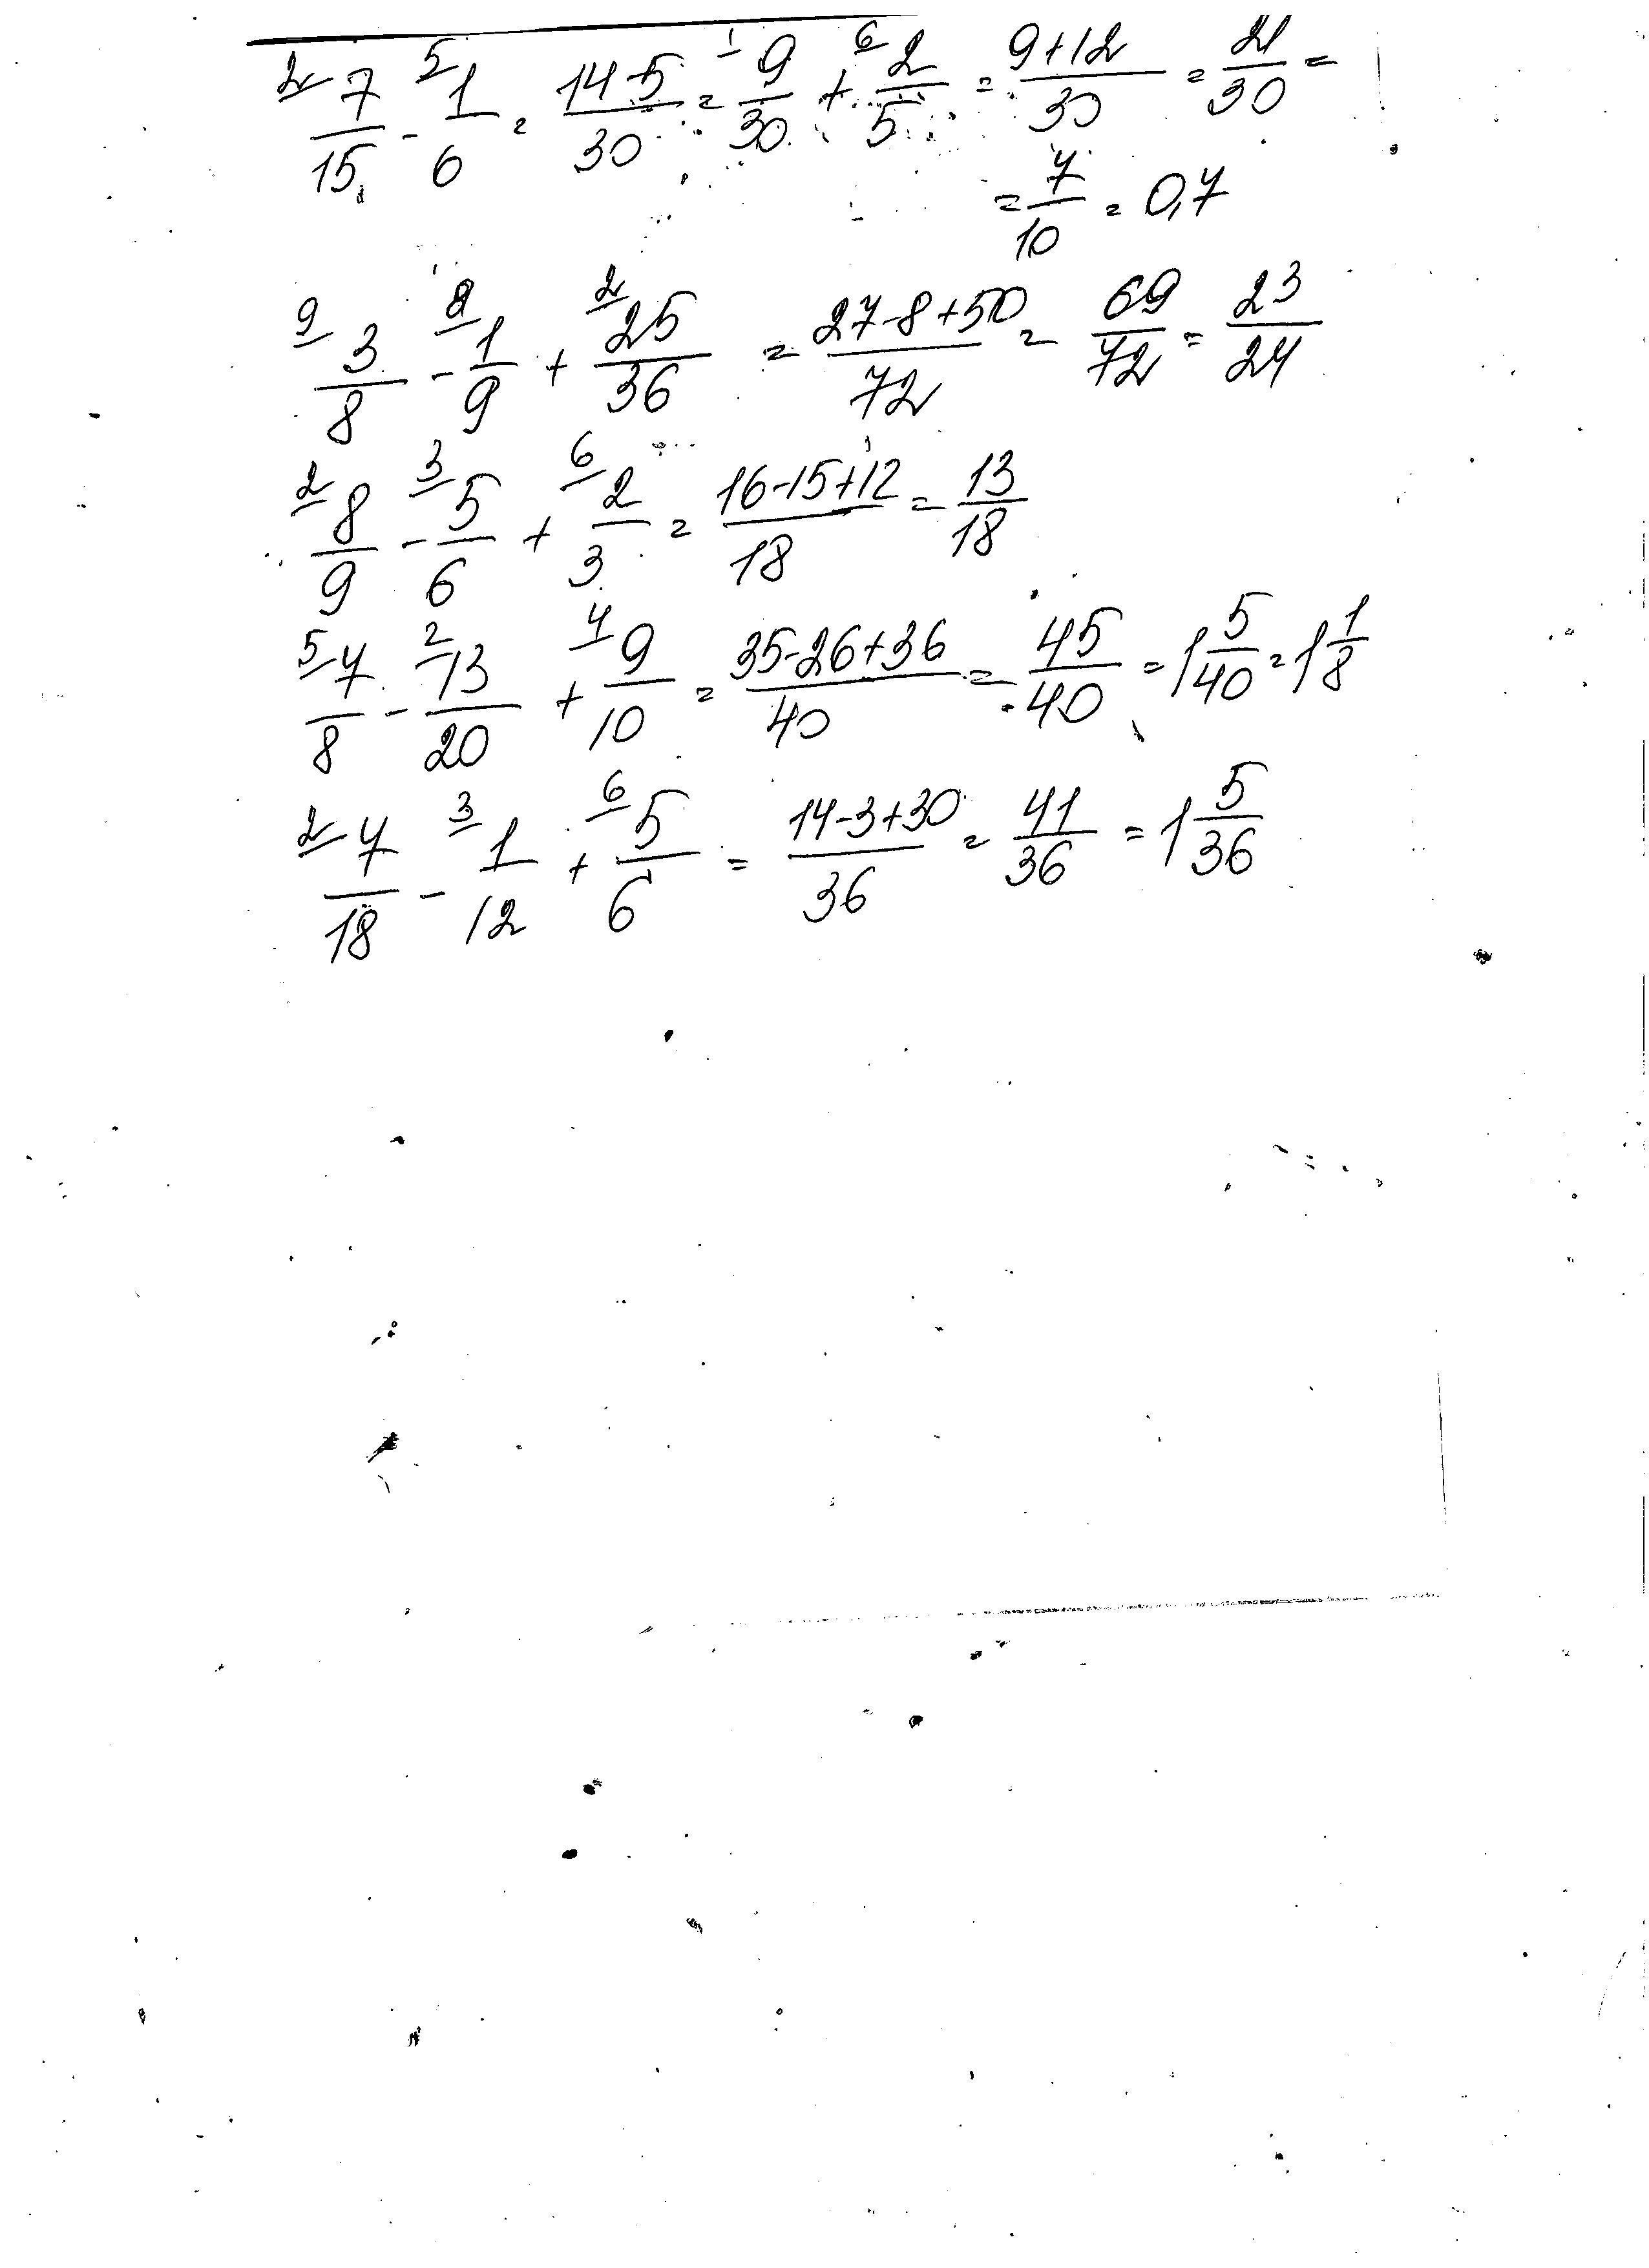 2⁄ 7/15 - 5⁄ 1/6 = (14-5)/30 = 1⁄ 9/30 + 6⁄ 2/5 = (9+12)/30 = 21/30 =
= 7/10 = 0,7
9⁄ 3/8 - 8⁄ 1/9 + 2⁄ 25/36 = (27-8+50)/72 = 69/72 = 23/24
2⁄ 8/9 - 3⁄ 5/6 + 6⁄ 2/3 = (16-15+12)/18 = 13/18
5⁄ 7/8 - 2⁄ 13/20 + 4⁄ 9/10 = (35-26+36)/40 = 45/40 = 1 5/40 = 1 1/8
2⁄ 7/18 - 3⁄ 1/12 + 6⁄ 5/6 = (14-3+30)/36 = 41/36 = 1 5/36